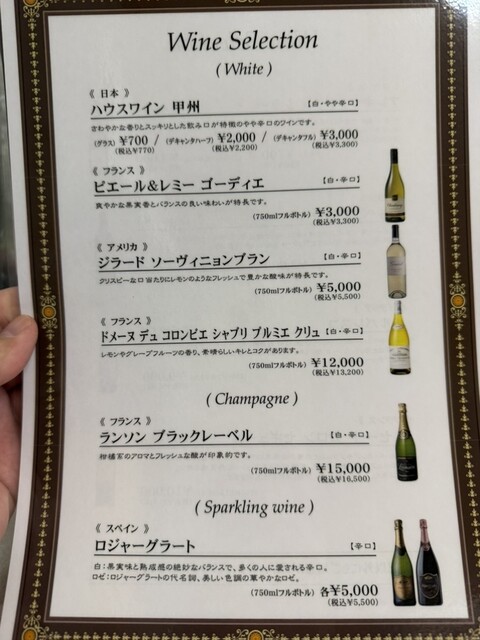 Wine Selection
( White )
《 日本 》
ハウスワイン 甲州 【白・やや辛口】
さわやかな香りとスッキリとした飲み口が特徴のやや辛口のワインです。
(グラス) ¥700 / (デキャンタハーフ) ¥2,000 / (デキャンタフル) ¥3,000
(税込¥770) (税込¥2,200) (税込¥3,300)
《 フランス 》
ピエール&レミー ゴーディエ 【白・辛口】
爽やかな果実香とバランスの良い味わいが特長です。
(750mlフルボトル) ¥3,000
(税込¥3,300)
《 アメリカ 》
ジラード ソーヴィニョンブラン 【白・辛口】
クリスピーな口当たりにレモンのようなフレッシュで豊かな酸味が特長です。
(750mlフルボトル) ¥5,000
(税込¥5,500)
《 フランス 》
ドメーヌ デュ コロンビエ シャブリ プルミエ クリュ 【白・辛口】
レモンやグレープフルーツの香り、素晴らしいキレとコクがあります。
(750mlフルボトル) ¥12,000
(税込¥13,200)
( Champagne )
《 フランス 》
ランソン ブラックレーベル 【白・辛口】
柑橘系のアロマとフレッシュな酸が印象的です。
(750mlフルボトル) ¥15,000
(税込¥16,500)
( Sparkling wine )
《 スペイン 》
ロジャーグラート 【辛口】
白：果実味と熟成感の絶妙なバランスで、多くの人に愛される辛口。
ロゼ：ロジャーグラートの代名詞、美しい色調の華やかなロゼ。
(750mlフルボトル) 各¥5,000
(税込¥5,500)